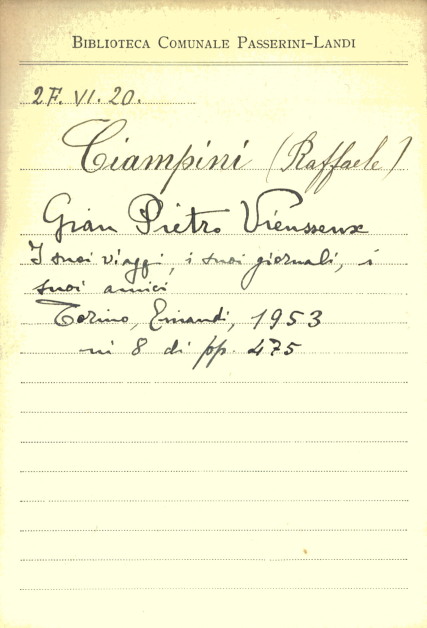 BIBLIOTECA COMUNALE PASSERINI-LANDI
2F. VI. 20.
Ciampini (Raffaele)
Gian Pietro Vieusseux
I suoi viaggi, i suoi giornali, i
suoi amici
Torino, Einaudi, 1953
in 8 di pp. 475